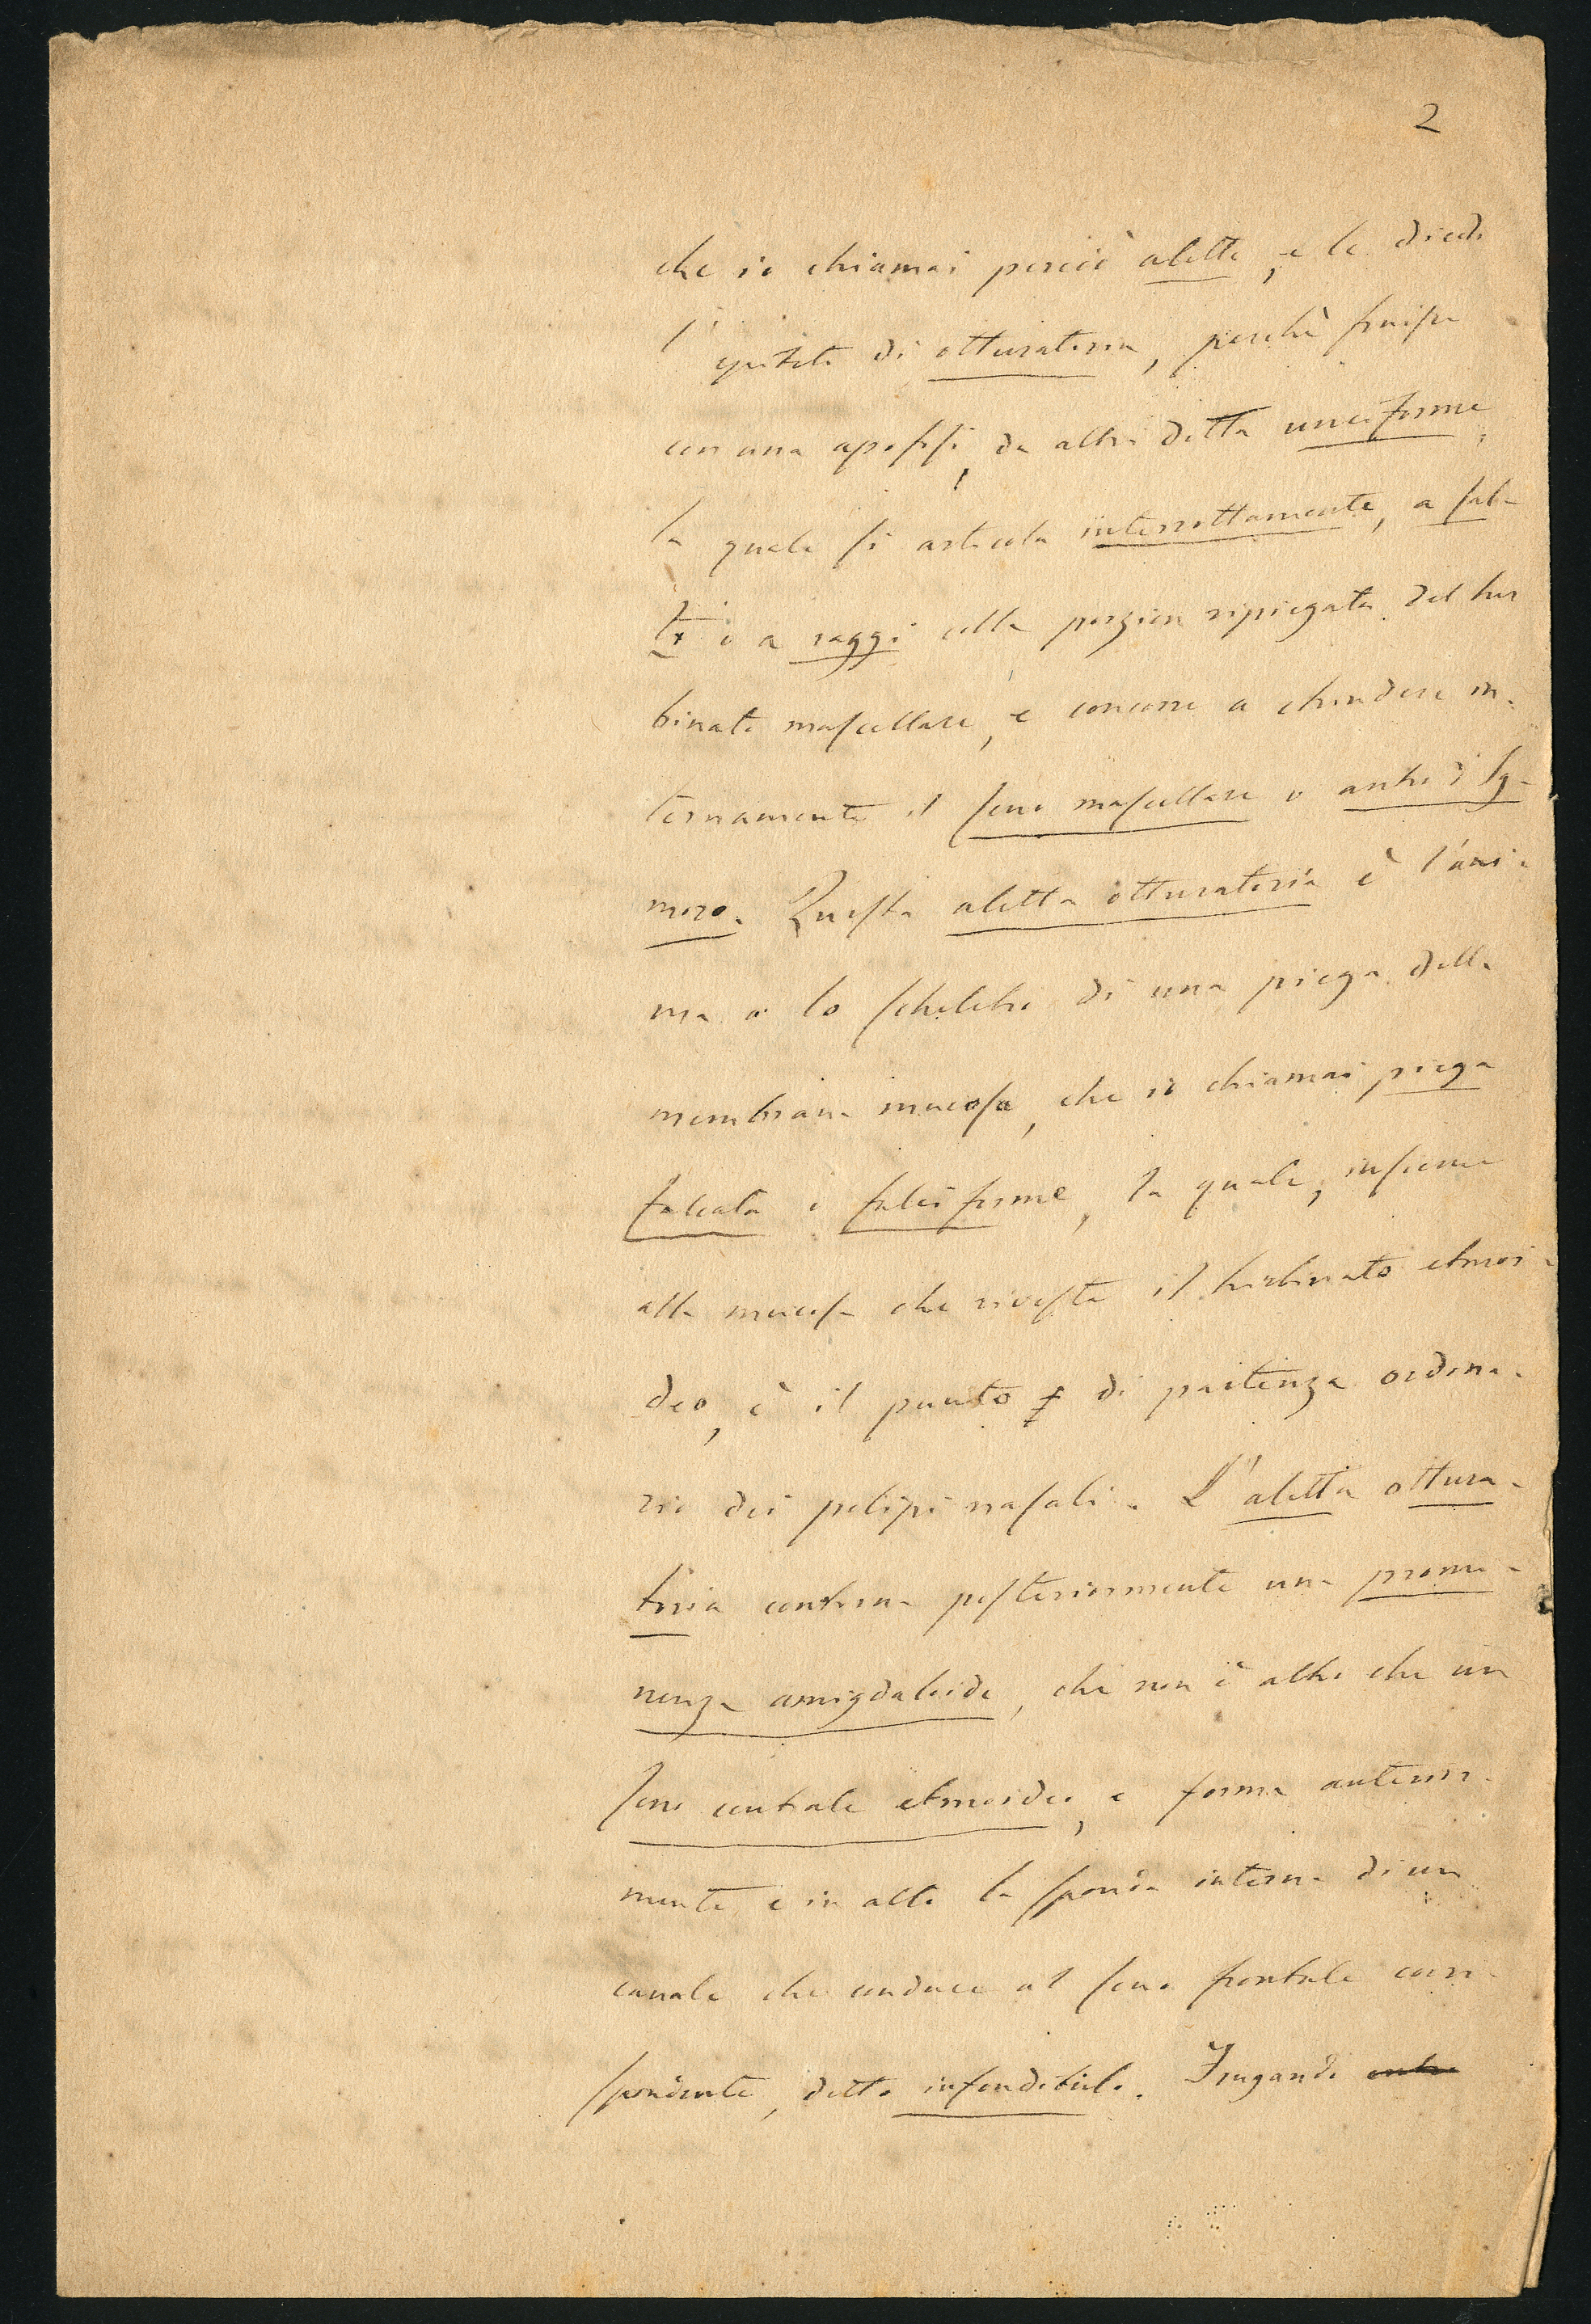 2
che io chiamai perciò aletta, e le diedi
l'epiteto di otturatoria, perchè finisce
con una apofisi, da altri detta unciforme,
la quale si articola interrottamente, a sal-
ti o a raggi colla porzion ripiegata del tur
binato mascellare, e concorre a chiudere in-
ternamente il seno mascellare o antro d'Ig-
moro. Questa aletta otturatoria è l'ani-
ma o lo scheletro di una piega della
membrana mucosa, che io chiamai piega
falcata o falciforme, la quale, insieme
alla mucosa che riveste il turbinato etmoi-
deo, è il punto di partenza ordina-
rio dei polipi nasali. L'aletta ottura-
toria contorna posteriormente una promi-
nenza amigdaloide, che non è altro che un
seno centrale etmoideo, e forma anterior-
mente e in alto la sponda interna di un
canale che conduce al seno frontale corri-
spondente, detto infondibulo. Frugando entro